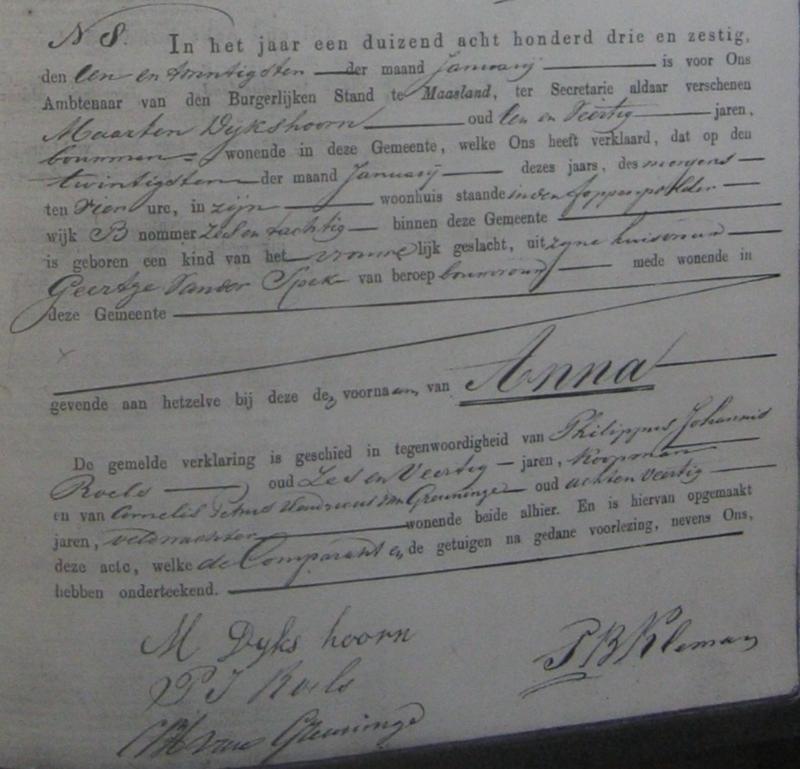 N 8. In het jaar een duizend acht honderd drie en zestig,
den Een en twintigsten der maand Januarij is voor Ons
Ambtenaar van den Burgerlijken Stand te Maasland, ter Secretarie aldaar verschenen
Maarten Dijkshoorn oud Een en Veertig jaren,
bouwman wonende in deze Gemeente, welke Ons heeft verklaard, dat op den
twintigsten der maand Januarij dezes jaars, des morgens
ten Vier ure, in zijn woonhuis staande in den foppenpolder
wijk B nommer een tachtig binnen deze Gemeente
is geboren een kind van het vrouwelijk geslacht, uit zijne huisvrouw
Geertje van der Spek van beroep bouwvrouw mede wonende in
deze Gemeente
gevende aan hetzelve bij deze den voornaam van Anna
De gemelde verklaring is geschied in tegenwoordigheid van Philippus Johannis
Roels oud Zes en Veertig jaren, Koopman
en van Cornelis Petrus Hendricus van Greuninge oud acht en veertig
jaren, veldwachter wonende beide alhier. En is hiervan opgemaakt
deze acte, welke de Comparant en de getuigen na gedane voorlezing, nevens Ons,
hebben onderteekend.
M Dijkshoorn
P J Roels
CPH van Greuninge
P B Kleman